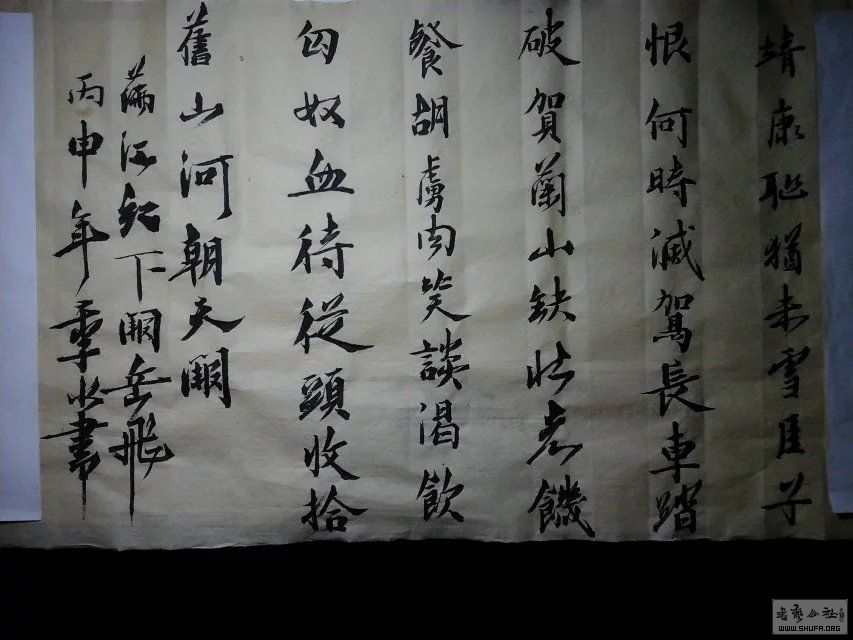 靖康耻猶未雪臣子
恨何時滅駕長車踏
破賀蘭山缺壯志饑
餐胡虜肉笑談渴飲
匈奴血待從頭收拾
舊山河朝天闕
滿江紅下闕岳飛
丙申年季書
书艺公社
WWW.SHUFA.ORG